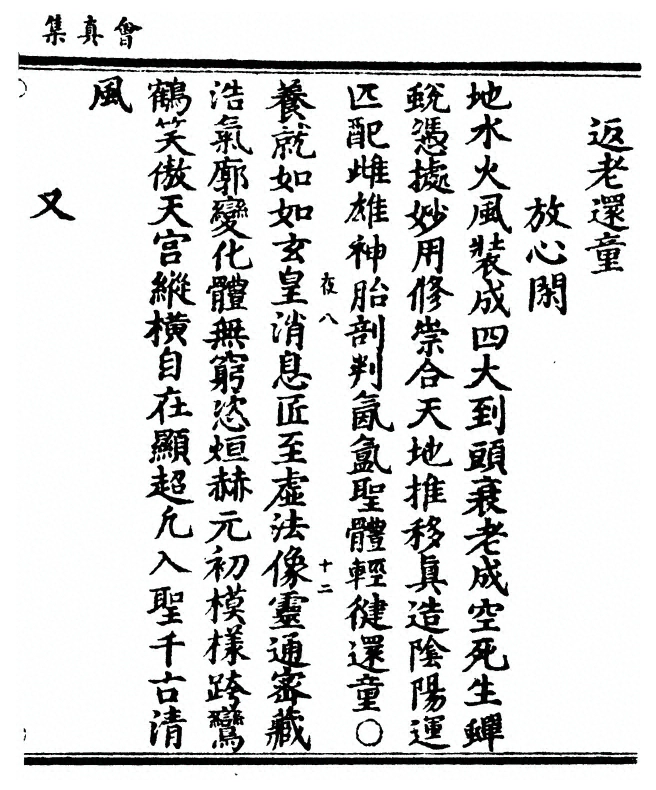 集真會
返老還童
放心閑
地水火風裝成四大到頭衰老成空死生蟬
蛻憑據妙用修崇合天地推移真造陰陽運
匹配雌雄神胎剖判氤氳聖體輕健還童〇
夜八
十二
養就如如玄皇消息匠至虛法像靈通密藏
浩氣廓變化體無窮恣烜赫元初模樣跨鸞
鶴笑傲天宮縱橫自在顯超凡入聖千古清
風
又